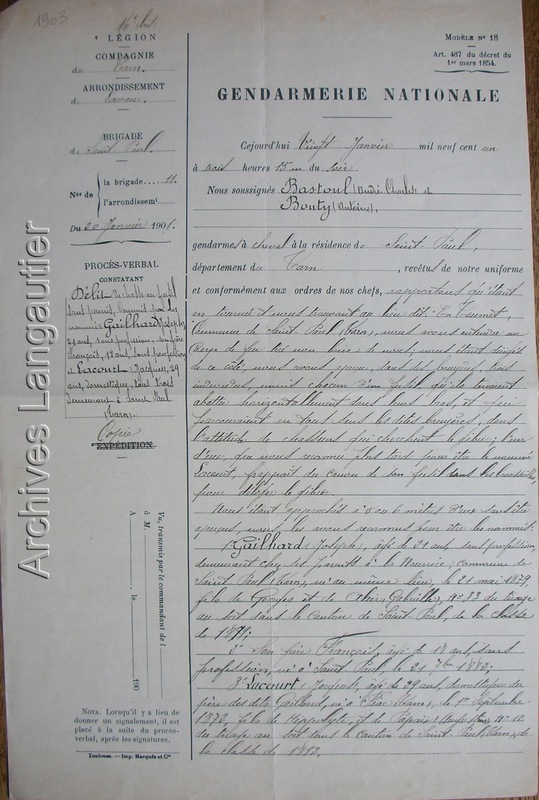 1903
16e
LÉGION
COMPAGNIE
du Tarn
ARRONDISSEMENT
de Lavaur
BRIGADE
de Saint Paul
Nos de
la brigade..... 11.
l'arrondissemt.
Du 20 Janvier 1901.
PROCÈS-VERBAL
CONSTATANT
Délit de chasse au fusil
sans permis, commis par les
nommés Gailhard (Joseph),
21 ans, sans profession, son frère
François, 18 ans, sans profession
et Lacourt (Jacques), 29
ans, domestique, tous trois
demeurant à Saint Paul
(Tarn).
Copie
EXPÉDITION
Vu, transmis par le commandant de l
à M.
A , le 190
NOTA. Lorsqu'il y a lieu de
donner un signalement, il est
placé à la suite du procès-
verbal, après les signatures.
Toulouse. — Imp. Marqués et Cie
MODÈLE No 18
Art. 487 du décret du
1er mars 1854.
GENDARMERIE NATIONALE
Cejourd'hui Vingt Janvier mil neuf cent un
à trois heures 15 m du soir.
Nous soussignés Bastoul (André, Charles) et
Bouty (Antoine),
gendarmes à cheval à la résidence de Saint Paul,
département du Tarn, revêtus de notre uniforme
et conformément aux ordres de nos chefs, rapportons qu'étant
en tournée et nous trouvant au lieu dit:
commune de Saint Paul (Tarn), nous avons entendu un
coup de feu tiré non loin de nous, nous étant dirigés
de ce côté, nous avons vu, dans les bruyères, trois
individus, munis chacun d'un fusil qu'ils tenaient
horizontalement dans leurs bras et qui
parcouraient en tous sens les dites bruyères, dans
l'attitude de chasseurs qui cherchent le gibier; l'un
d'eux, que nous avons reconnu plus tard pour être le nommé
Lacourt, frappait du canon de son fusil dans les broussailles
pour déloger le gibier.
Nous étant approchés à 5 ou 6 mètres d'eux sans être
aperçus, nous les avons reconnus pour être les nommés:
1o Gailhard (Joseph), âgé de 21 ans, sans profession,
demeurant chez ses parents à la commune de
Saint Paul (Tarn), né au même lieu, le 21 mai 1879,
fils de Georges et de Gabrielle, no 33 de tirage
au sort dans le canton de Saint Paul, de la classe
de 1899;
2o Son frère François, âgé de 18 ans, sans
profession, né à Saint Paul le 21 7bre 1882;
3o Lacourt (Jacques), âgé de 29 ans, domestique du
père des dits Gailhard, né à (Tarn), le 1er Septembre
1872, fils de et de
du tirage au sort dans le canton de Saint Paul (Tarn), de
la classe de 1892.
Archives Langautier